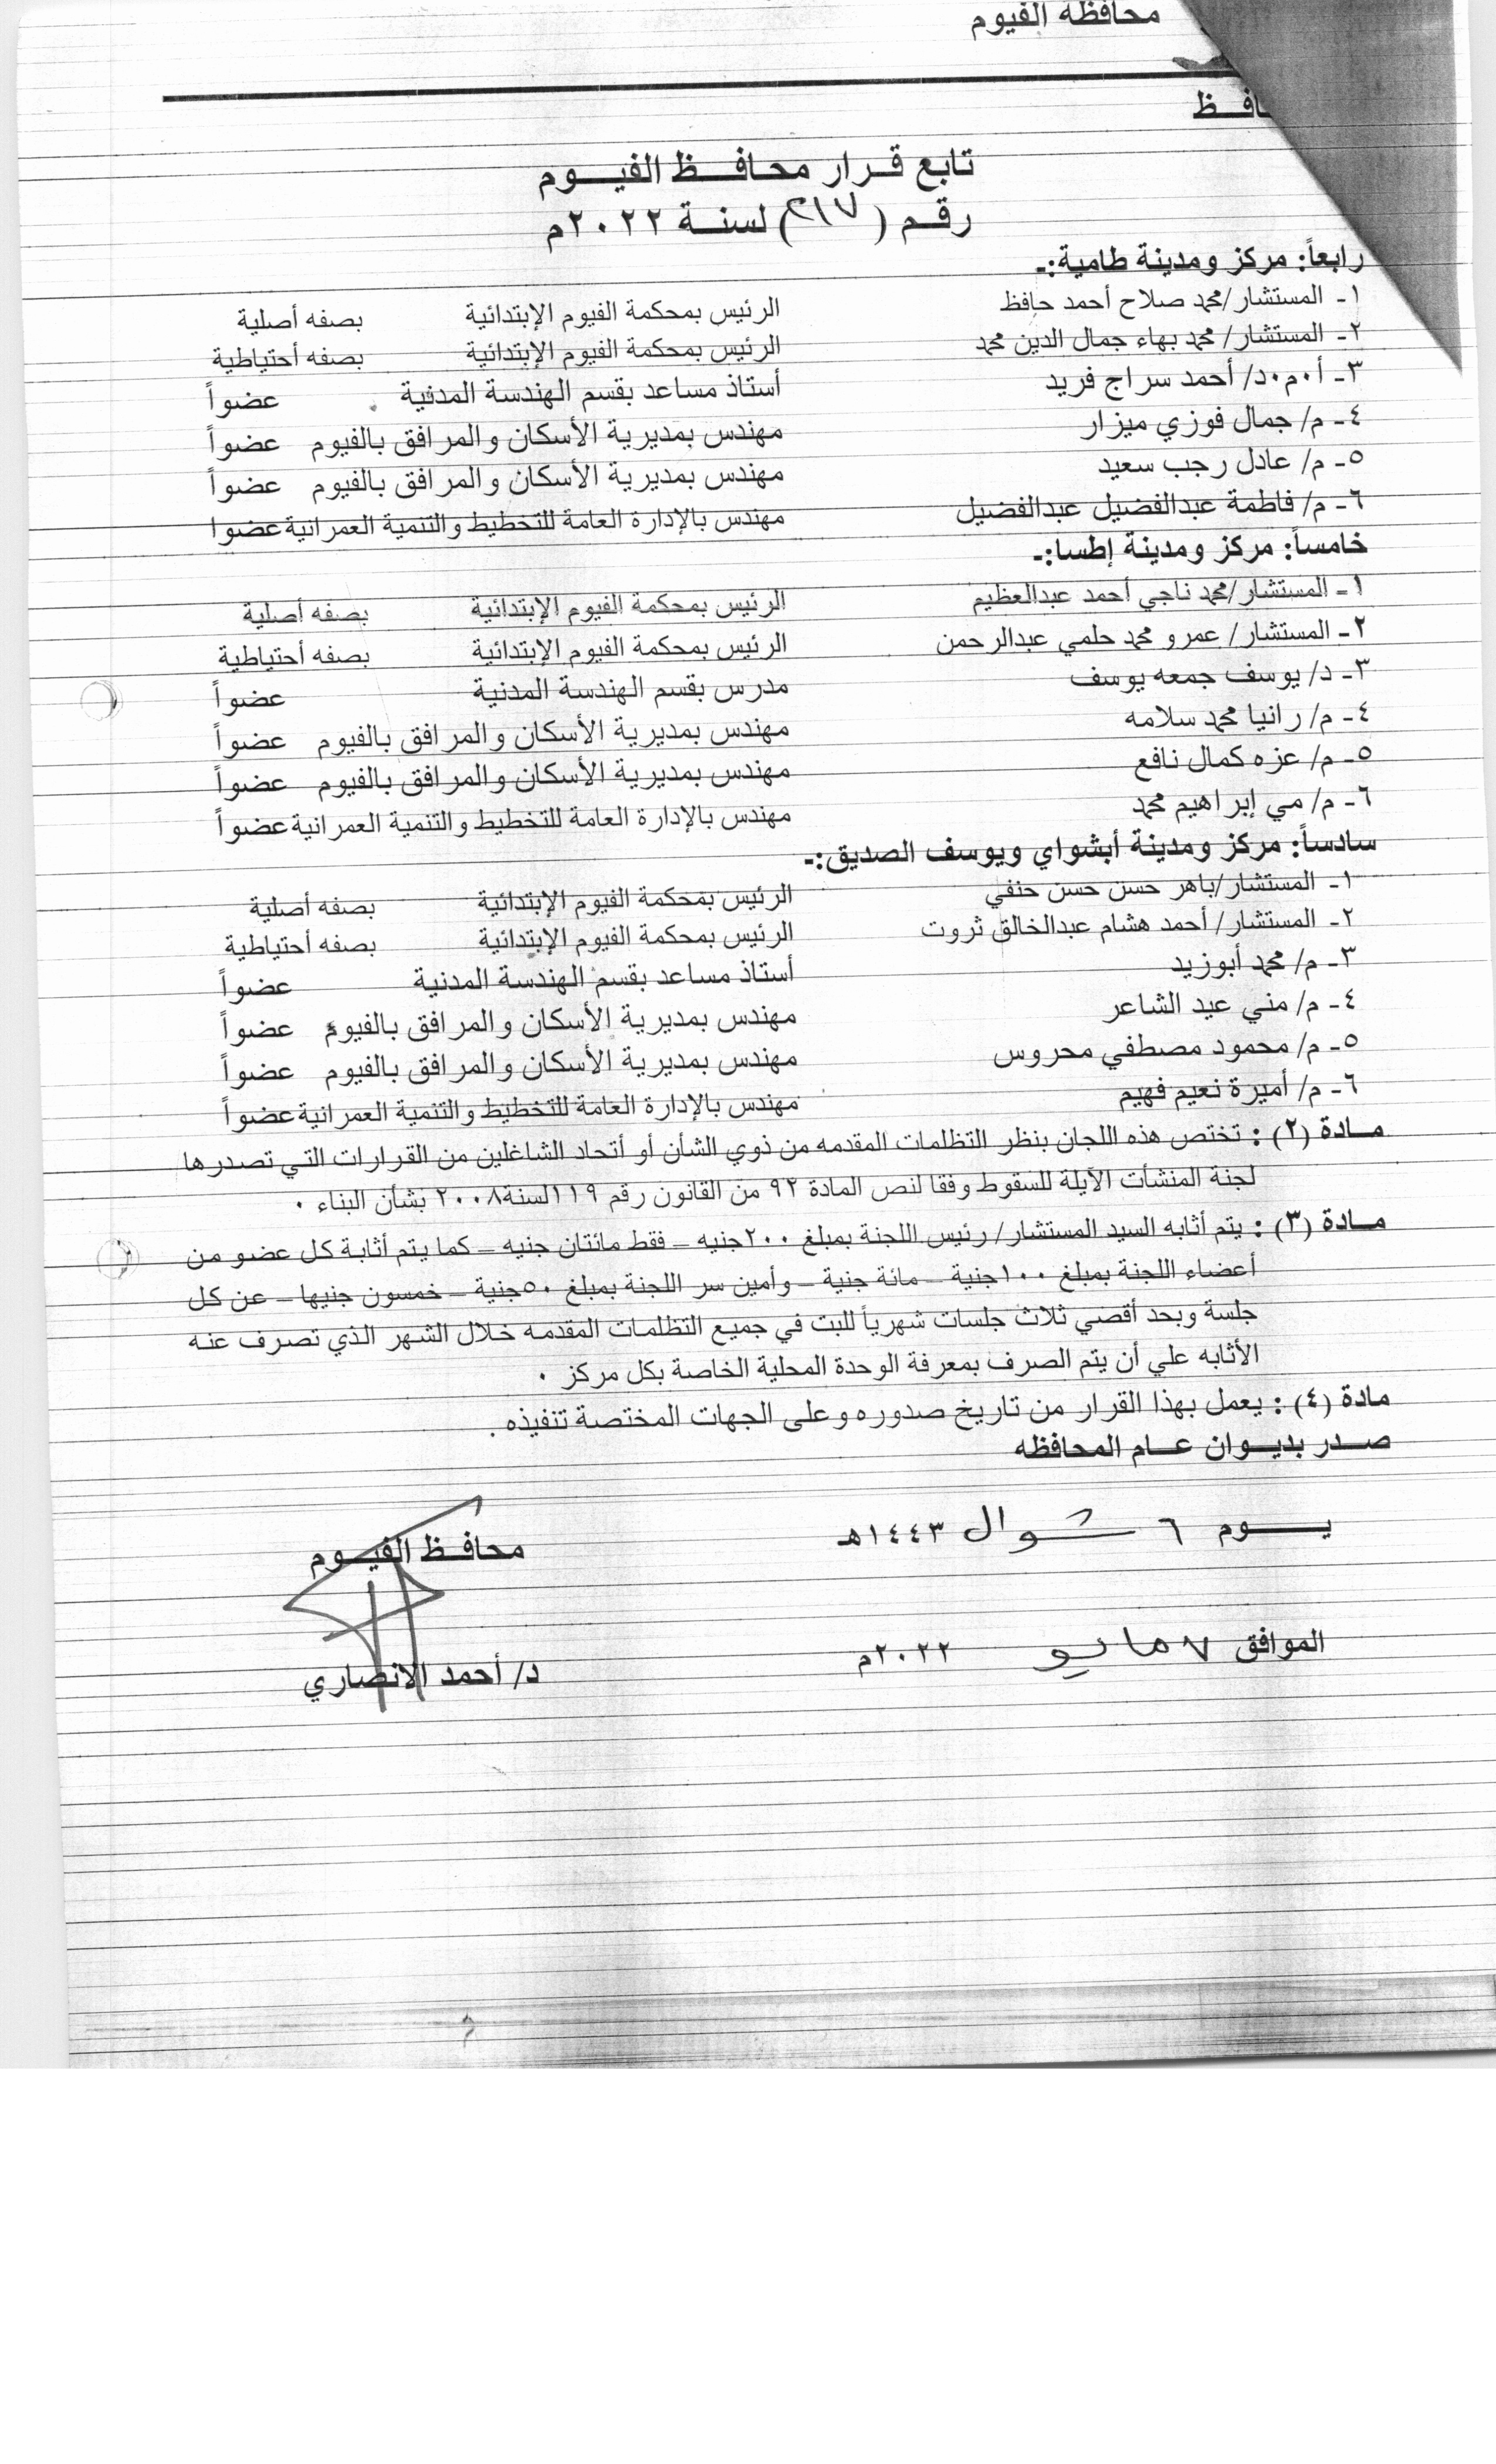 محافظة الفيوم
تابع قرار محافظ الفيوم
رقم (٢١٧) لسنة ٢٠٢٢م
رابعاً: مركز ومدينة طامية:-
١- المستشار/محمد صلاح أحمد حافظ الرئيس بمحكمة الفيوم الإبتدائية بصفه أصلية
٢- المستشار/ محمد بهاء جمال الدين محمد الرئيس بمحكمة الفيوم الإبتدائية بصفه أحتياطية
٣- أ٠م٠د/ أحمد سراج فريد أستاذ مساعد بقسم الهندسة المدنية عضواً
٤- م/ جمال فوزي ميزار مهندس بمديرية الأسكان والمرافق بالفيوم عضواً
٥- م/ عادل رجب سعيد مهندس بمديرية الأسكان والمرافق بالفيوم عضواً
٦- م/ فاطمة عبدالفضيل عبدالفضيل مهندس بالإدارة العامة للتخطيط والتنمية العمرانية عضوا
خامساً: مركز ومدينة إطسا:-
١- المستشار/محمد ناجي أحمد عبدالعظيم الرئيس بمحكمة الفيوم الإبتدائية بصفه أصلية
٢- المستشار/ عمرو محمد حلمي عبدالرحمن الرئيس بمحكمة الفيوم الإبتدائية بصفه أحتياطية
٣- د/ يوسف جمعه يوسف مدرس بقسم الهندسة المدنية عضواً
٤- م/ رانيا محمد سلامه مهندس بمديرية الأسكان والمرافق بالفيوم عضواً
٥- م/ عزه كمال نافع مهندس بمديرية الأسكان والمرافق بالفيوم عضواً
٦- م/ مي إبراهيم محمد مهندس بالإدارة العامة للتخطيط والتنمية العمرانية عضواً
سادساً: مركز ومدينة أبشواي ويوسف الصديق:-
١- المستشار/باهر حسن حسن حنفي الرئيس بمحكمة الفيوم الإبتدائية بصفه أصلية
٢- المستشار/ أحمد هشام عبدالخالق ثروت الرئيس بمحكمة الفيوم الإبتدائية بصفه أحتياطية
٣- م/ محمد أبوزيد أستاذ مساعد بقسم الهندسة المدنية عضواً
٤- م/ مني عيد الشاعر مهندس بمديرية الأسكان والمرافق بالفيوم عضواً
٥- م/ محمود مصطفي محروس مهندس بمديرية الأسكان والمرافق بالفيوم عضواً
٦- م/ أميرة نعيم فهيم مهندس بالإدارة العامة للتخطيط والتنمية العمرانية عضواً
مادة (٢) : تختص هذه اللجان بنظر التظلمات المقدمه من ذوي الشأن أو أتحاد الشاغلين من القرارات التي تصدرها
لجنة المنشآت الآيلة للسقوط وفقا لنص المادة ٩٢ من القانون رقم ١١٩لسنة٢٠٠٨ بشأن البناء ٠
مادة (٣) : يتم أثابه السيد المستشار/ رئيس اللجنة بمبلغ ٢٠٠جنيه – فقط مائتان جنيه – كما يتم أثابة كل عضو من
أعضاء اللجنة بمبلغ ١٠٠جنية – مائة جنية – وأمين سر اللجنة بمبلغ ٥٠جنية – خمسون جنيها – عن كل
جلسة وبحد أقصي ثلاث جلسات شهرياً للبت في جميع التظلمات المقدمه خلال الشهر الذي تصرف عنه
الأثابه علي أن يتم الصرف بمعرفة الوحدة المحلية الخاصة بكل مركز ٠
مادة (٤) : يعمل بهذا القرار من تاريخ صدوره وعلى الجهات المختصة تنفيذه .
صدر بديوان عام المحافظه
يوم ٦ شوال ١٤٤٣هـ
محافظ الفيوم
الموافق ٧ مايو ٢٠٢٢م
د/ أحمد الانصاري